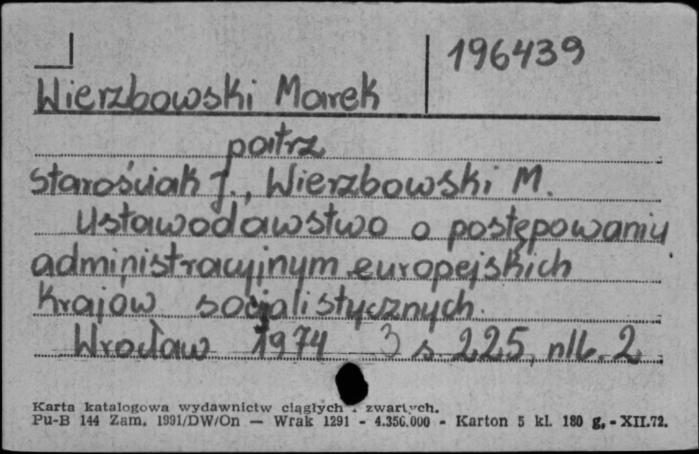 196439
Wierzbowski Marek
patrz
Starościak J., Wierzbowski M.
Ustawodawstwo o postępowaniu
administracyjnym europejskich
krajow socjalistycznych.
Wrocław 1974 3 s 225, nlb. 2
Karta katalogowa wydawnictw ciągłych i zwartych.
Pu-B 144 Zam. 1991/DW/On — Wrak 1291 - 4.356.000 - Karton 5 kl. 180 g. - XII.72.